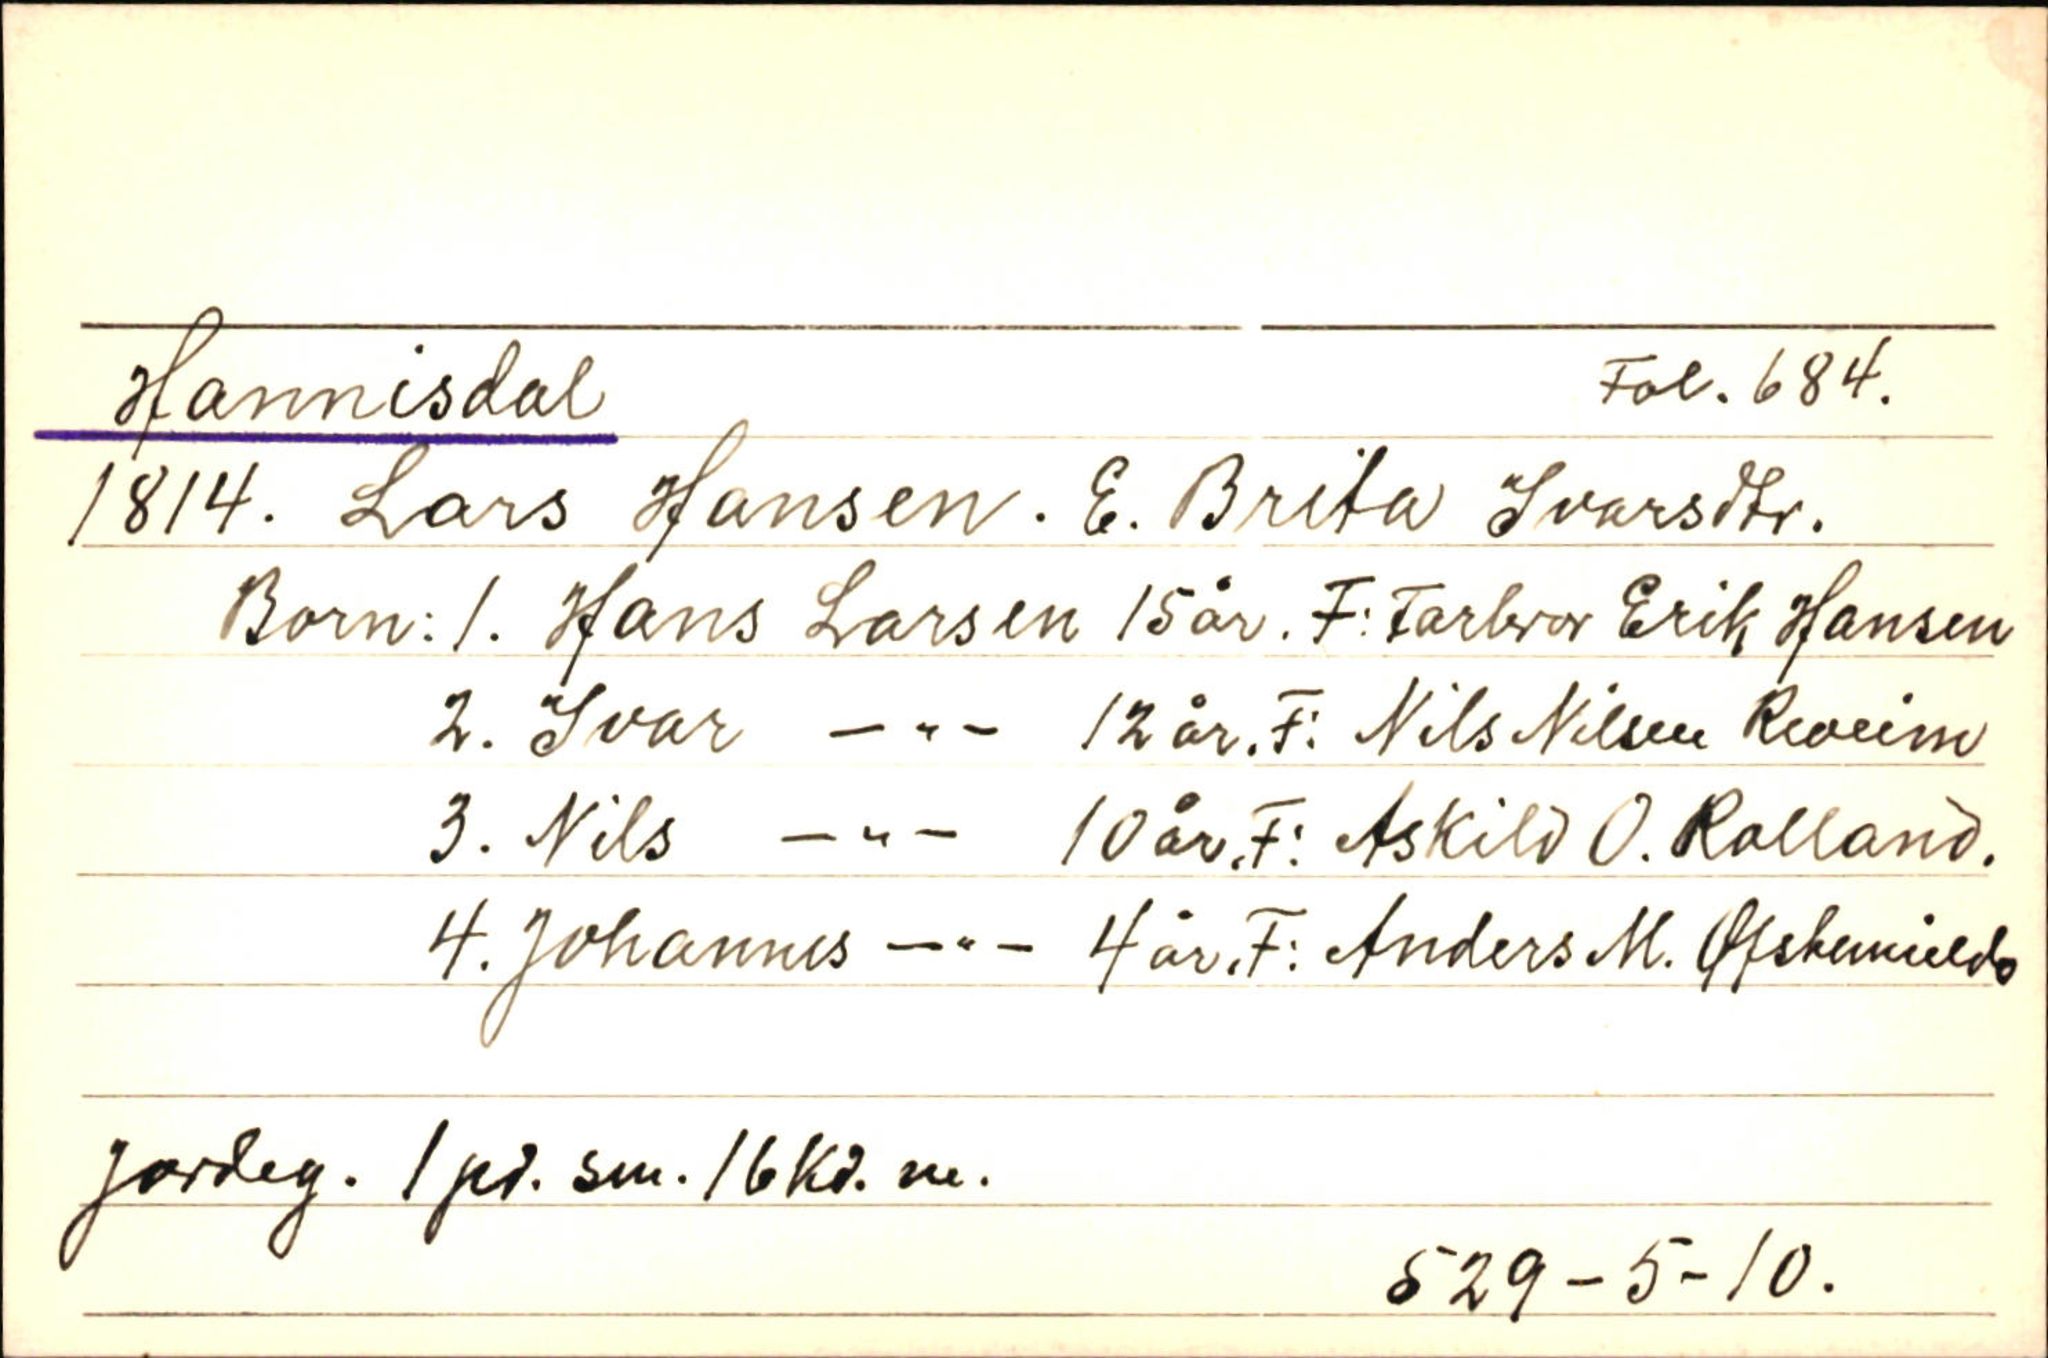 Hannisdal Fol. 684.
1814. Lars Hansen. E. Brita Ivarsdtr.
Born: 1. Hans Larsen 15 år. F: Farbror Erik Hansen
2. Ivar —"— 12 år. F: Nils Nilsen Reveim
3. Nils —"— 10 år. F: Askild O. Rolland.
4. Johannes —"— 4 år. F: Anders M.
Jordeg. 1 pd. sm. 16 kd. m.
529-5-10.